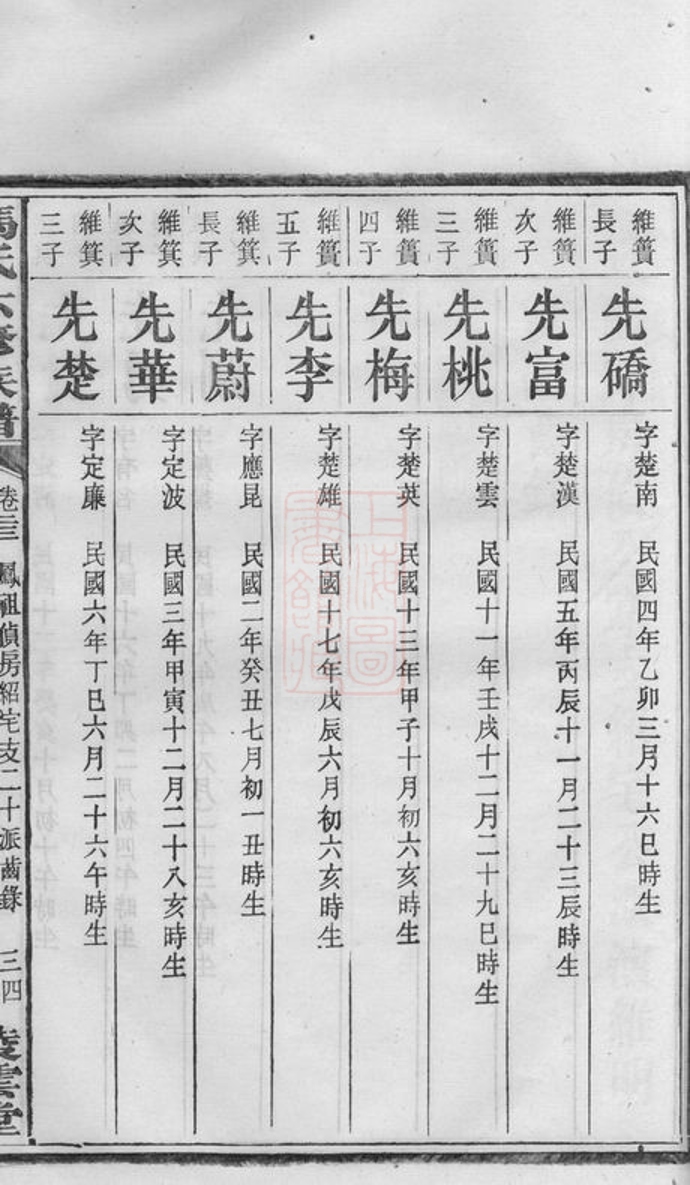 維簣長子
先礄
字楚南 民國四年乙卯三月十六巳時生
維簣次子
先富
字楚漢 民國五年丙辰十一月二十三辰時生
維簣三子
先桃
字楚雲 民國十一年壬戌十二月二十九巳時生
維簣四子
先梅
字楚英 民國十三年甲子十月初六亥時生
維簣五子
先李
字楚雄 民國十七年戊辰六月初六亥時生
維箕長子
先蔚
字應昆 民國二年癸丑七月初一丑時生
維箕次子
先華
字定波 民國三年甲寅十二月二十八亥時生
維箕三子
先楚
字定廉 民國六年丁巳六月二十六午時生
馮氏六修族譜 卷三 鳳祖偵房紹宅支二十派齒錄 三四 凌雲堂
上海圖書館藏